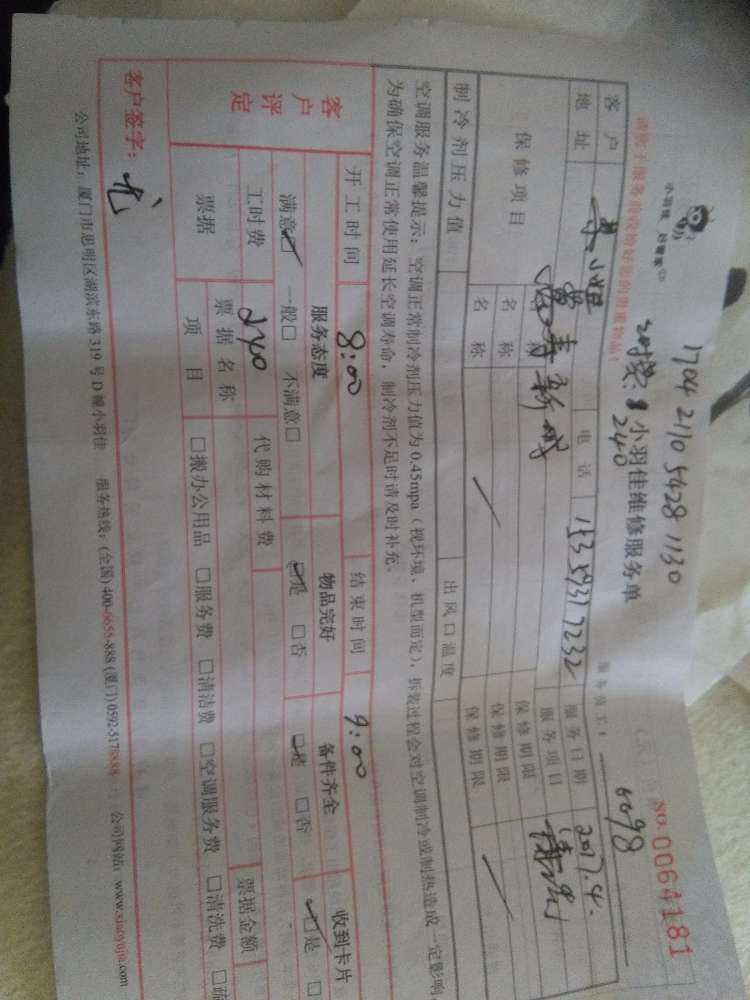 1704 2110 5428 1130
小羽佳 好管家
小羽佳维修服务单
240
服务员工: 5098
NO.0064181
请您于服务前收拾好您的贵重物品!
客户
电话
服务日期 2017.4.
地址
服务项目
保修项目
名称
保修期限
名称
保修期限
名称
保修期限
制冷剂压力值
出风口温度
空调服务温馨提示:空调正常制冷剂压力值为0.45mpa(视环境、机型而定),拆装过程会对空调制冷或制热造成一定影响
为确保空调正常使用延长空调寿命,制冷剂不足时请及时补充。
客户评定
开工时间 8:00 结束时间 9:00
服务态度 物品完好 备件齐全 收到卡片
满意☑ 一般□ 不满意□ ☑是 □否 ☑是 □否 ☑是 □
工时费 240 代购材料费
票据 票据名称 票据金额
项目 □搬办公用品 □服务费 □清洁费 □空调服务费 □清洗费 □疏
客户签字:
公司地址:厦门市思明区湖滨东路319号D幢小羽佳 服务热线:(全国)400-6655-888(厦门)0592-5178888 公司网站:www.xiaoyujia.com